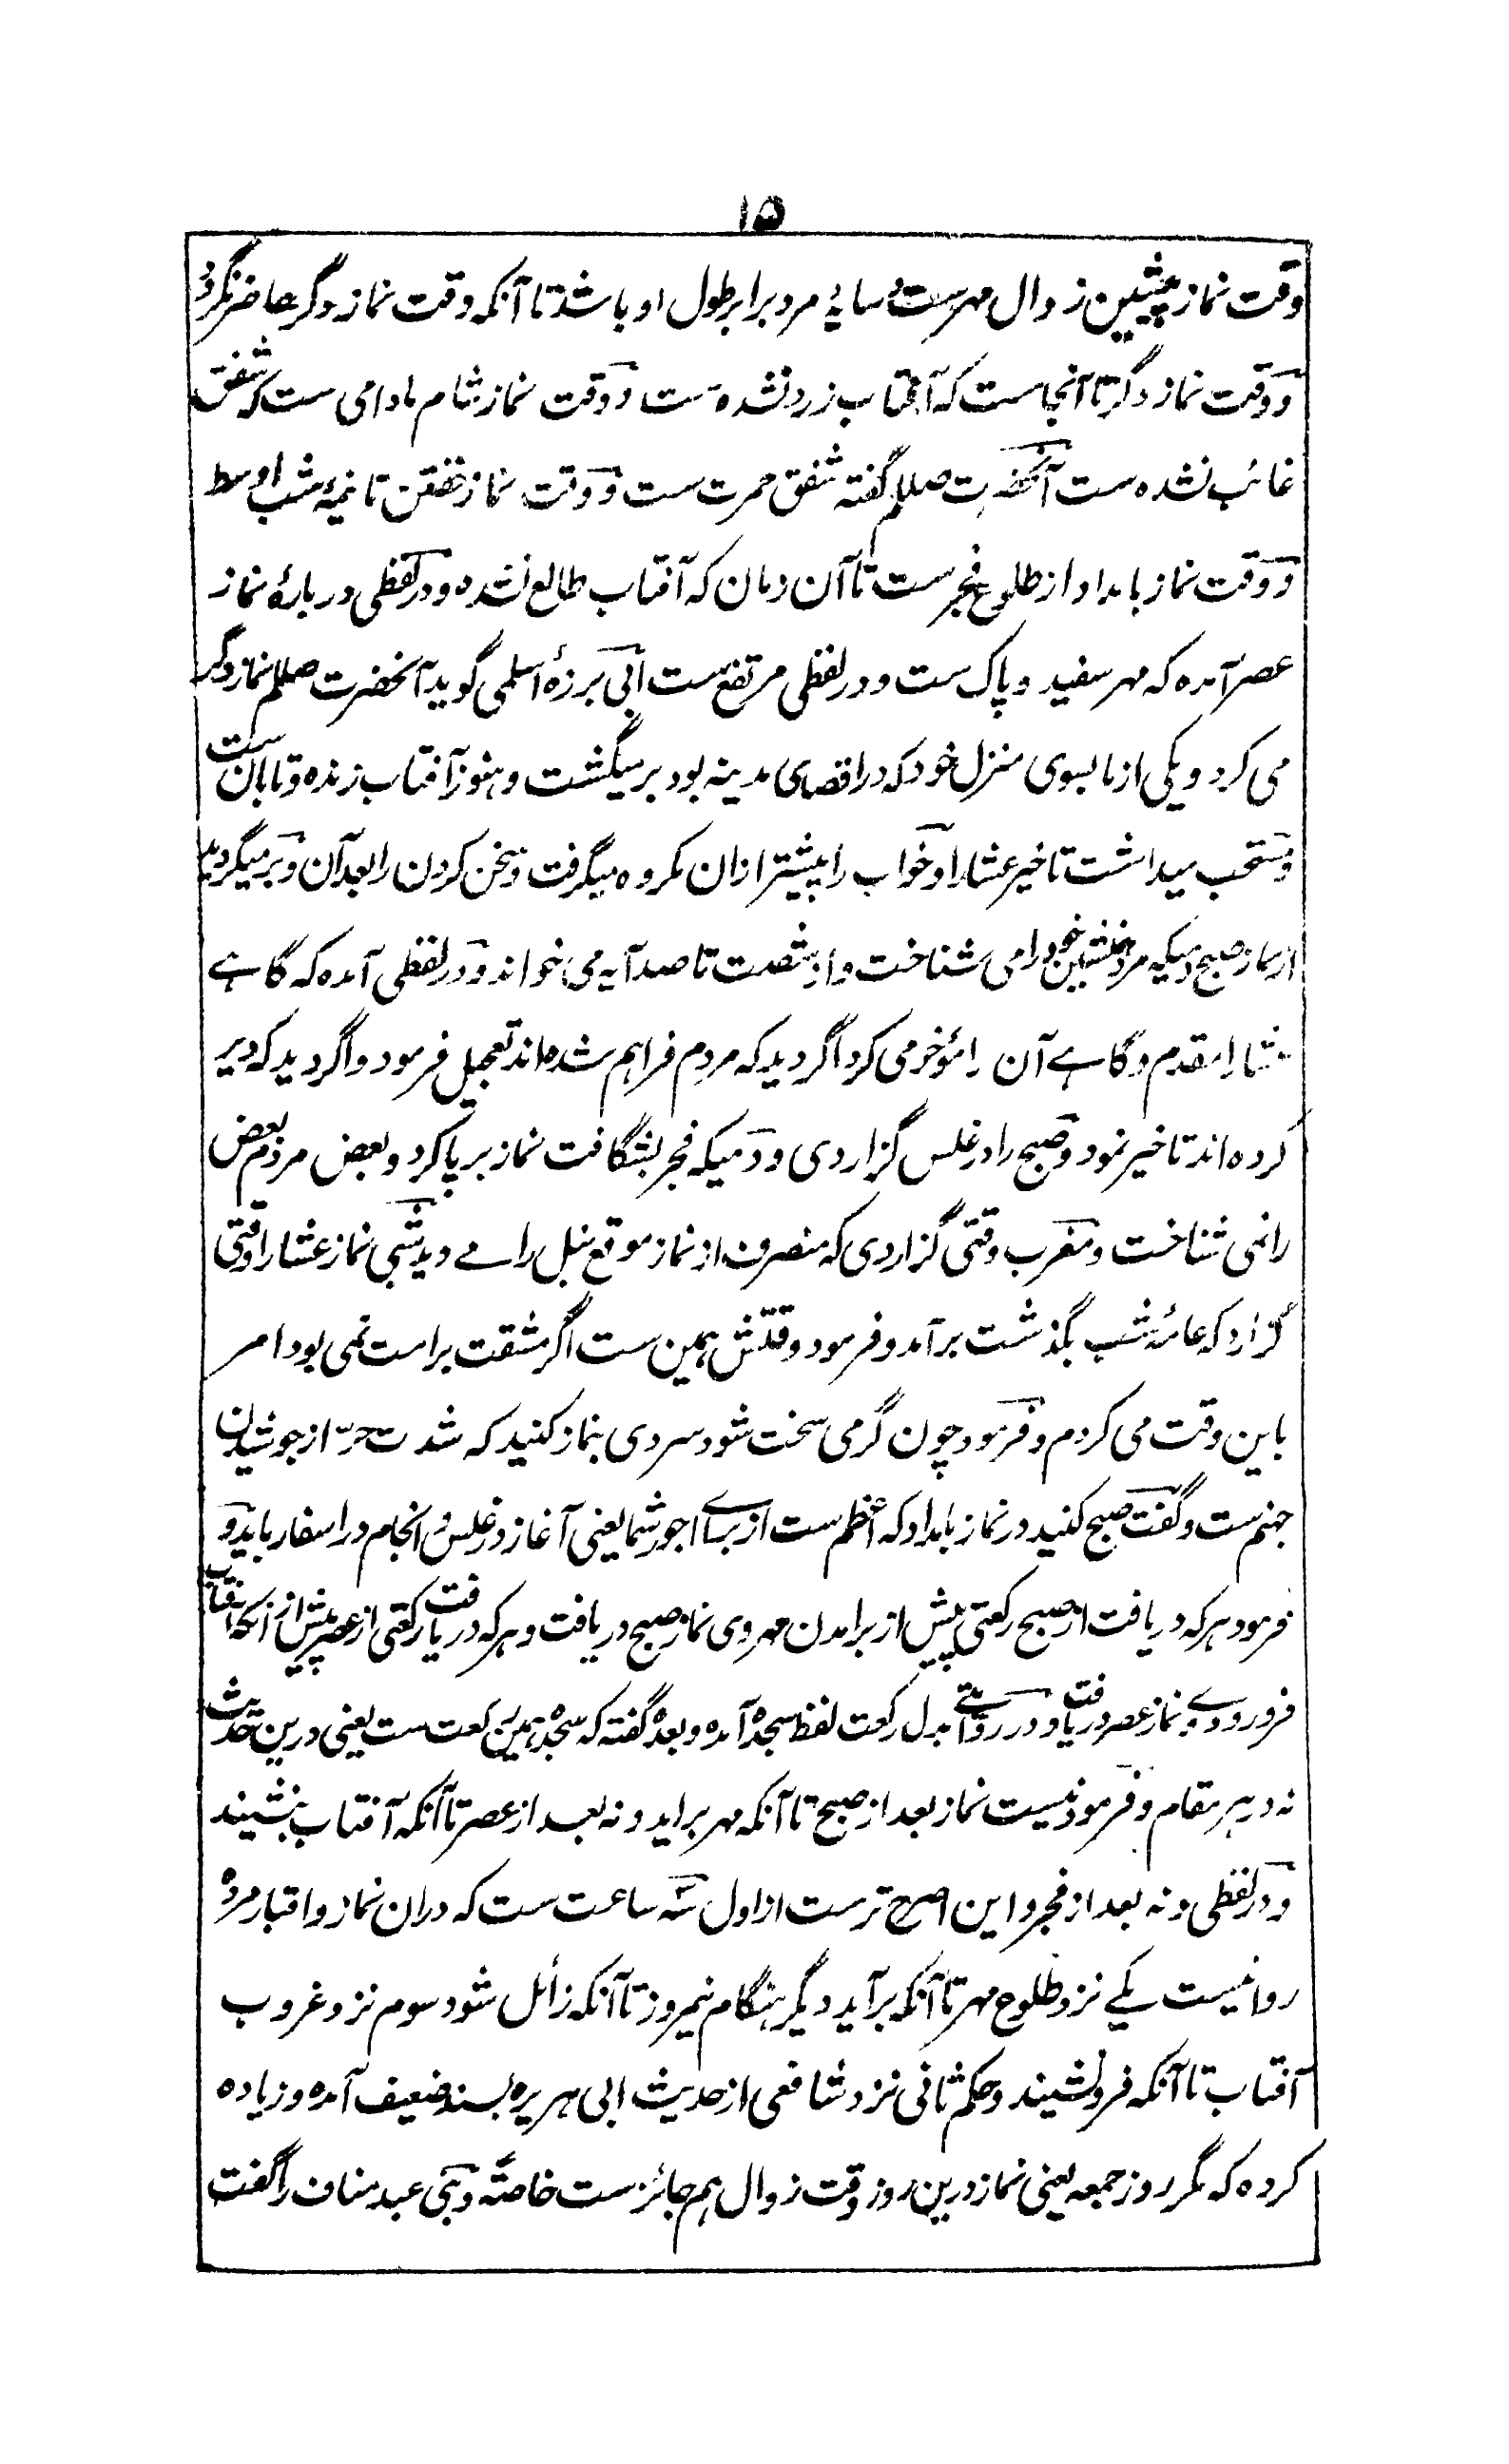 ١٥
وقت نماز پیشین زوال مهرست و سایهٔ مرد برابر طول او باشد تا آنکه وقت نماز دگر حاضر نگردد
و وقت نماز دگر تا آنجاست که آفتاب زرد نشده ست و وقت نماز شام مادامی ست که شفق
غائب نشده ست آنحضرت صللم گفته شفق حمرت ست و وقت نماز خفتن تا نیمهٔ شب اوسط
و وقت نماز بامداد از طلوع فجرست تا آن زمان که آفتاب طالع نشده و در لفظی دربارهٔ نماز
عصر آمده که مهر سفید و پاک ست و در لفظی مرتفع ست ابی برزهٔ اسلمی گوید آنحضرت صللم نماز دگر
می کرد و یکی از ما بسوی منزل خود که در اقصای مدینه بود برمیگشت و هنوز آفتاب زنده و تابان ست
و مستحب میداشت تاخیر عشا را و خواب را پیشتر ازان مکروه میگرفت و سخن کردن را بعد آن و برمیگردید
از نماز صبح دمیکه مرد همنشین خود را می شناخت و از شصت تا صد آیه می خواند و در لفظی آمده که گاہے
عشا را مقدم و گاہے آن را مؤخر می کرد اگر دید که مردم فراهم شده اند تعجیل فرمود و اگر دید که دیر
کرده اند تاخیر نمود و صبح را در غلس گزاردی و دمیکه فجر بشگافت نماز برپا کرد و بعض مردم بعض
را نمی شناخت و مغرب وقتی گزاردی که منصرف از نماز موقع نبل را مے دید شبی نماز عشا را وقتی
گزارد که عامهٔ شب بگذشت برآمد و فرمود وقتش همین ست اگر مشقت بر امت نمی بود امر
باین وقت می کردم و فرمود چون گرمی سخت شود سردی بنماز کنید که شدت حرّ از جوشیدن
جهنم ست و گفت صبح کنید در نماز بامداد که اعظم ست از براے اجور شما یعنی آغاز در غلس و انجام در اسفار باید و
فرمود هر که دریافت از صبح رکعتی پیش از برامدن مهر وی نماز صبح دریافت و هر که دریافت رکعتی از عصر پیش از آنکه آفتاب
فرو رود وے نماز عصر دریافت و در روایتے بدل رکعت لفظ سجده آمده و بعده گفته که سجده همین رکعت ست یعنی درین حدیث
نه در هر مقام و فرمود نیست نماز بعد از صبح تا آنکه مهر براید و نه بعد از عصر تا آنکه آفتاب بنشیند
و در لفظی و نه بعد از فجر و این اصرح ترست از اول سه ساعت ست که دران نماز و اقبار مرده
روا نیست یکے نزد طلوع مهر تا آنکه برآید دیگر هنگام نیمروز تا آنکه زائل شود سوم نزد غروب
آفتاب تا آنکه فرونشیند و حکم ثانی نزد شافعی از حدیث ابی هریره بسند ضعیف آمده و زیاده
کرده که مگر روز جمعه یعنی نماز درین روز وقت زوال هم جائزست خاصةً و بنی عبد مناف را گفت